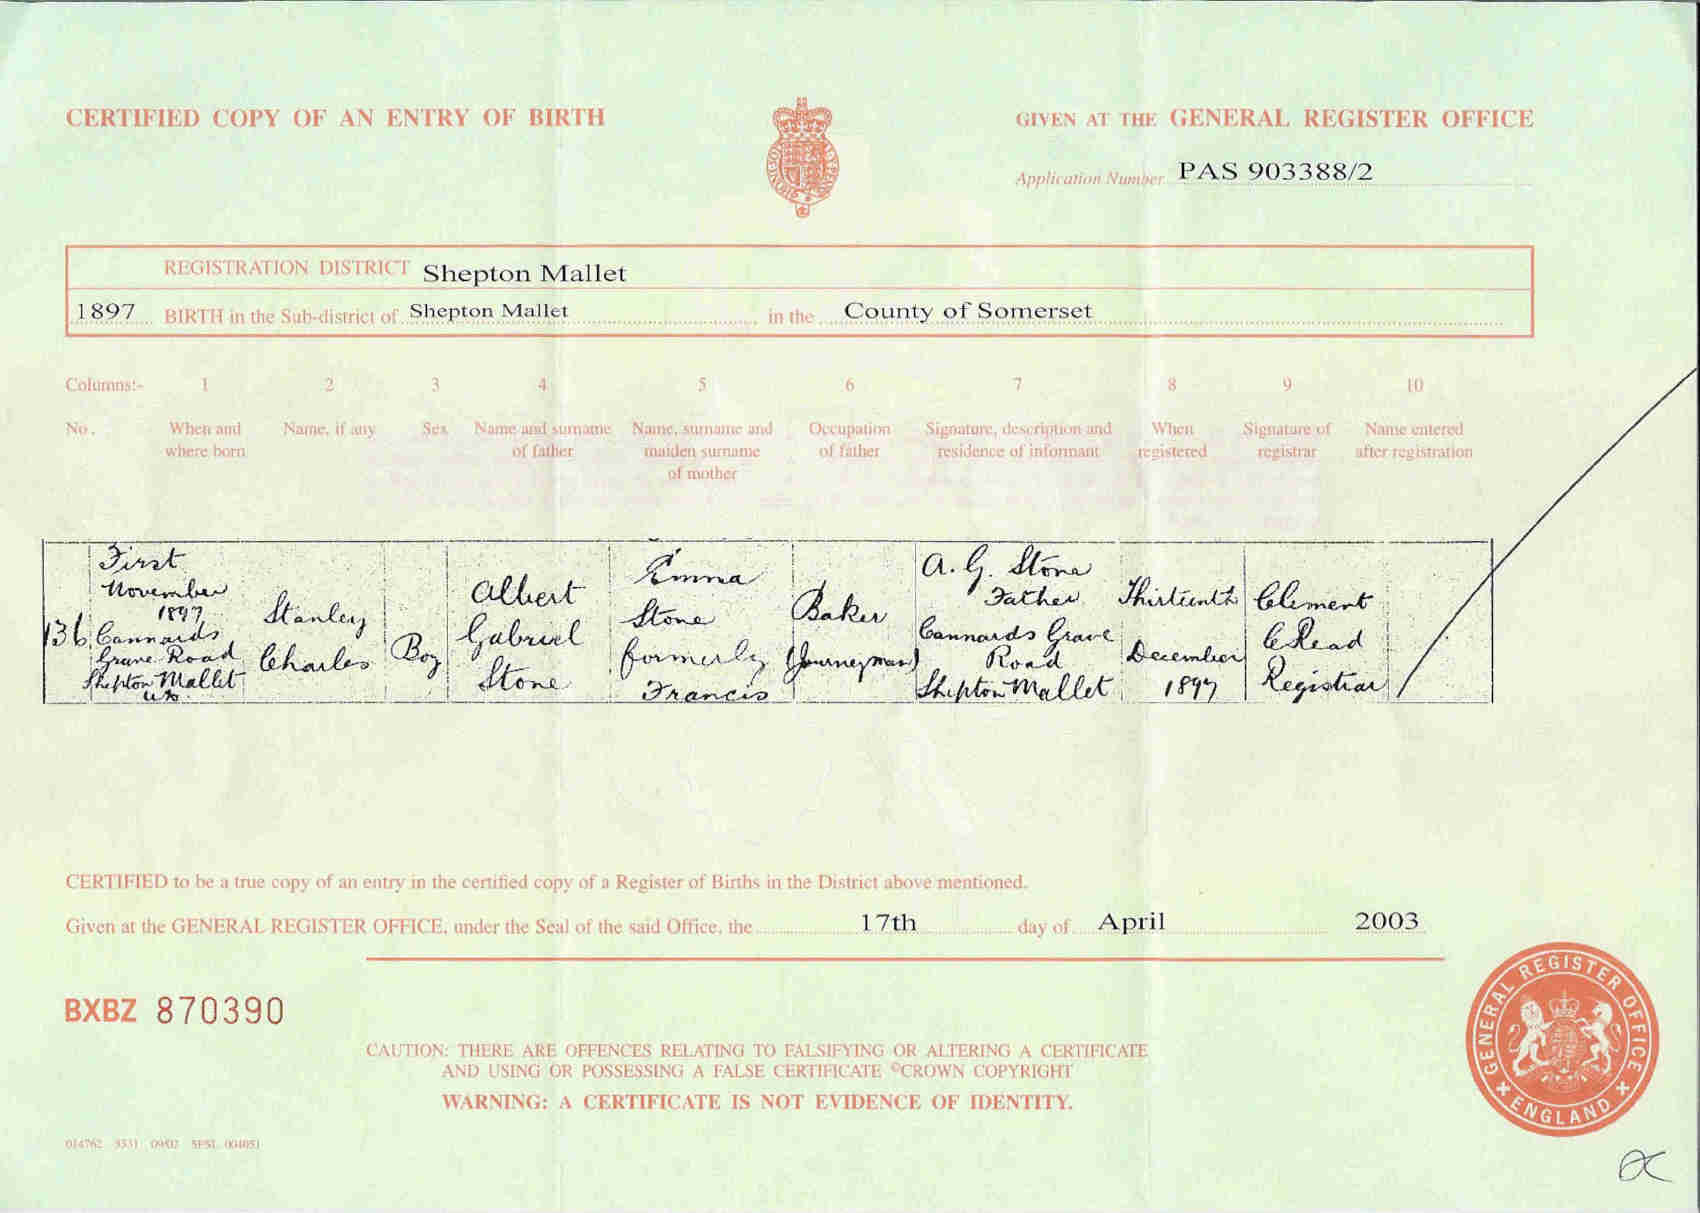 CERTIFIED COPY OF AN ENTRY OF BIRTH
GIVEN AT THE GENERAL REGISTER OFFICE
Application Number PAS 903388/2
REGISTRATION DISTRICT Shepton Mallet
1897 BIRTH in the Sub-district of Shepton Mallet in the County of Somerset
Columns:- 1 2 3 4 5 6 7 8 9 10
No. When and where born
Name, if any
Sex
Name and surname of father
Name, surname and maiden surname of mother
Occupation of father
Signature, description and residence of informant
When registered
Signature of registrar
Name entered after registration
136
First
November
1897
Cannards
Grave Road
Shepton Mallet
Stanley
Charles
Boy
Albert
Gabriel
Stone
Emma
Stone
formerly
Francis
Baker
(Journeyman)
A. G. Stone
Father
Cannards Grave
Road
Shepton Mallet
Thirteenth
December
1897
Clement
C Read
Registrar
CERTIFIED to be a true copy of an entry in the certified copy of a Register of Births in the District above mentioned.
Given at the GENERAL REGISTER OFFICE, under the Seal of the said Office, the 17th day of April 2003
BXBZ 870390
CAUTION: THERE ARE OFFENCES RELATING TO FALSIFYING OR ALTERING A CERTIFICATE
AND USING OR POSSESSING A FALSE CERTIFICATE ©CROWN COPYRIGHT
WARNING: A CERTIFICATE IS NOT EVIDENCE OF IDENTITY.
GENERAL REGISTER OFFICE
ENGLAND